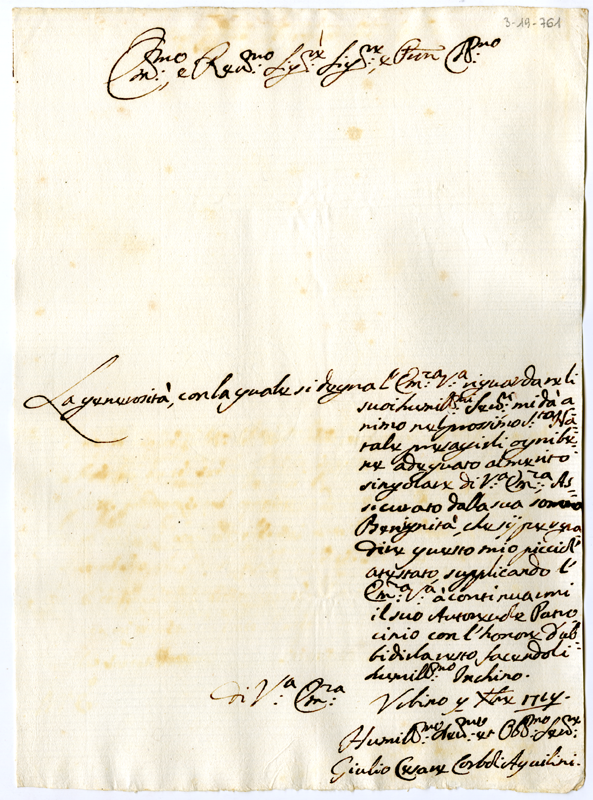 3-19-761
Em:mo, e Rev:mo Sig:re Sig:re, e Pron Col:mo
La generosità, con la quale si degna l'Em:za V:a riguardare li
suoi humil:mi Serv:ri mi dà a-
nimo nel prossimo S:to Na-
tale presagirli ogni be-
ne adeguato al merito
singolare di V:a Em:za, As-
sicurato dalla sua somma
Benignità, che sij per gra
dire questo mio picciol'
atestato, supplicando l'
Em:za V:a à continuarmi
il suo Autorevole Patro
cinio con l'honore d'ub
bidirla resto facendoli
humill:mo Inchino.
di V:a Em:za Urbino 9 Xbre
Humill:mo Dev:mo et Obl:mo Serv:re
Giulio Cesare Corboli Aquilini.